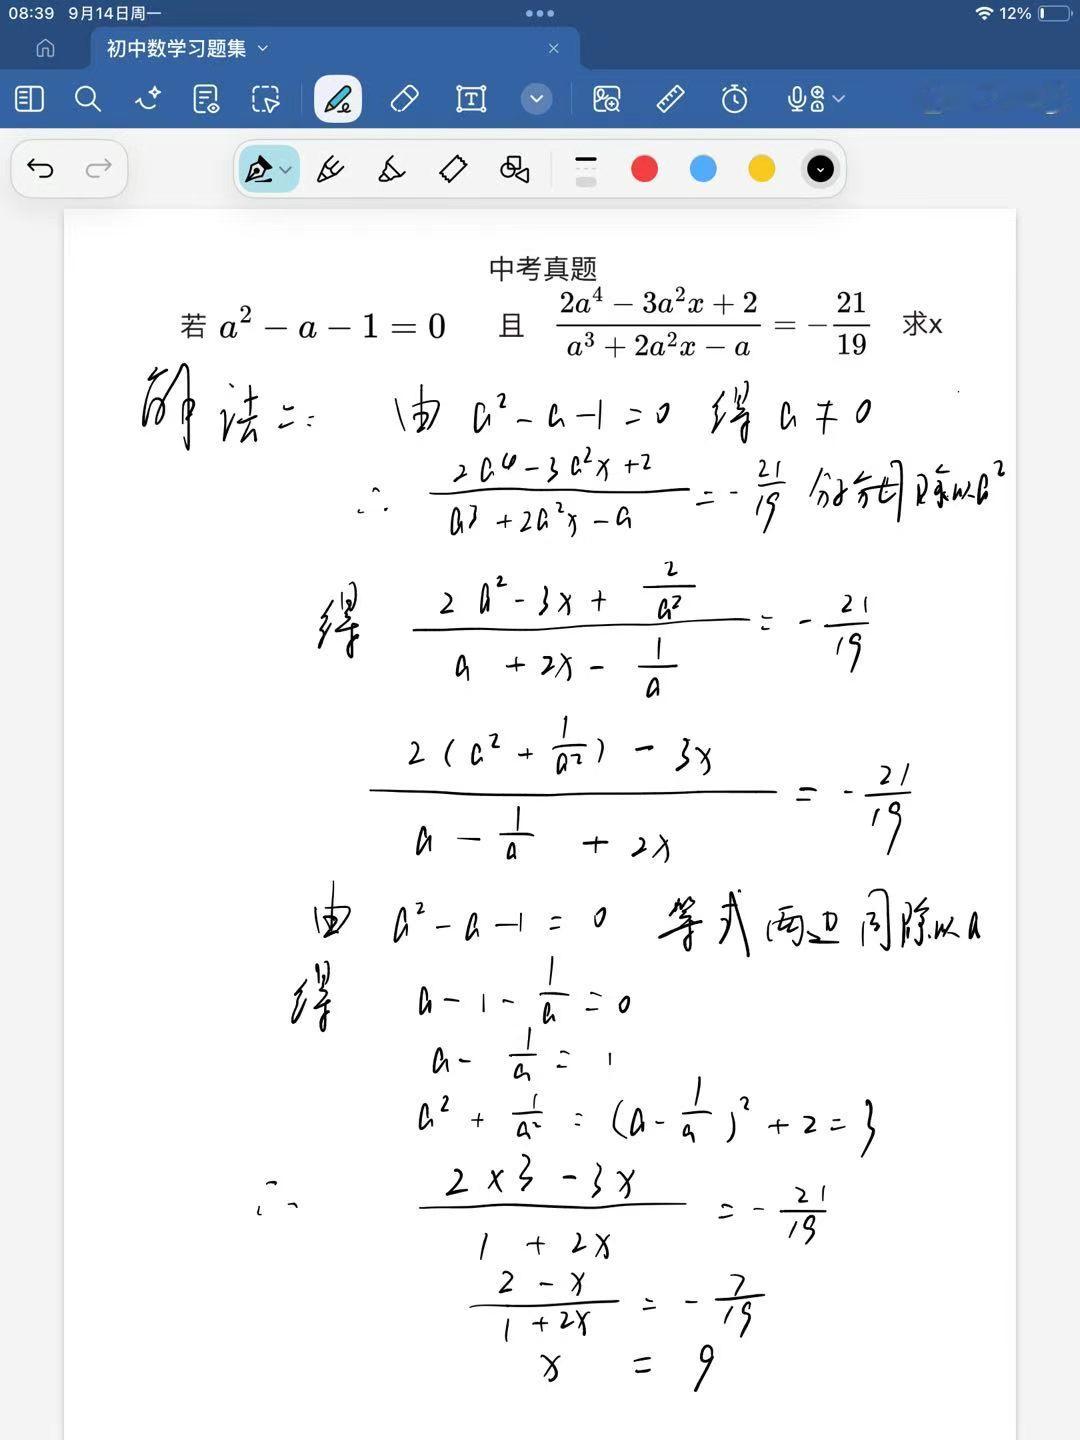 08:39 9月14日周一 12%
初中数学习题集
中考真题
若 a² − a − 1 = 0 且 (2a⁴ − 3a²x + 2)/(a³ + 2a²x − a) = −21/19 求x
解法二: 由 a² − a − 1 = 0 得 a ≠ 0
∴ (2a⁴ − 3a²x + 2)/(a³ + 2a²x − a) = −21/19 分子分母同除以a²
得 (2a² − 3x + 2/a²)/(a + 2x − 1/a) = −21/19
(2(a² + 1/a²) − 3x)/(a − 1/a + 2x) = −21/19
由 a² − a − 1 = 0 等式两边同除以a
得 a − 1 − 1/a = 0
a − 1/a = 1
a² + 1/a² = (a − 1/a)² + 2 = 3
∴ (2×3 − 3x)/(1 + 2x) = −21/19
(2 − x)/(1 + 2x) = −7/19
x = 9